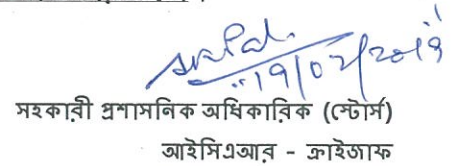 19/02/2019
সহকারী প্রশাসনিক অধিকারিক (স্টোর্স)
আইসিএআর - ক্রাইজাফ